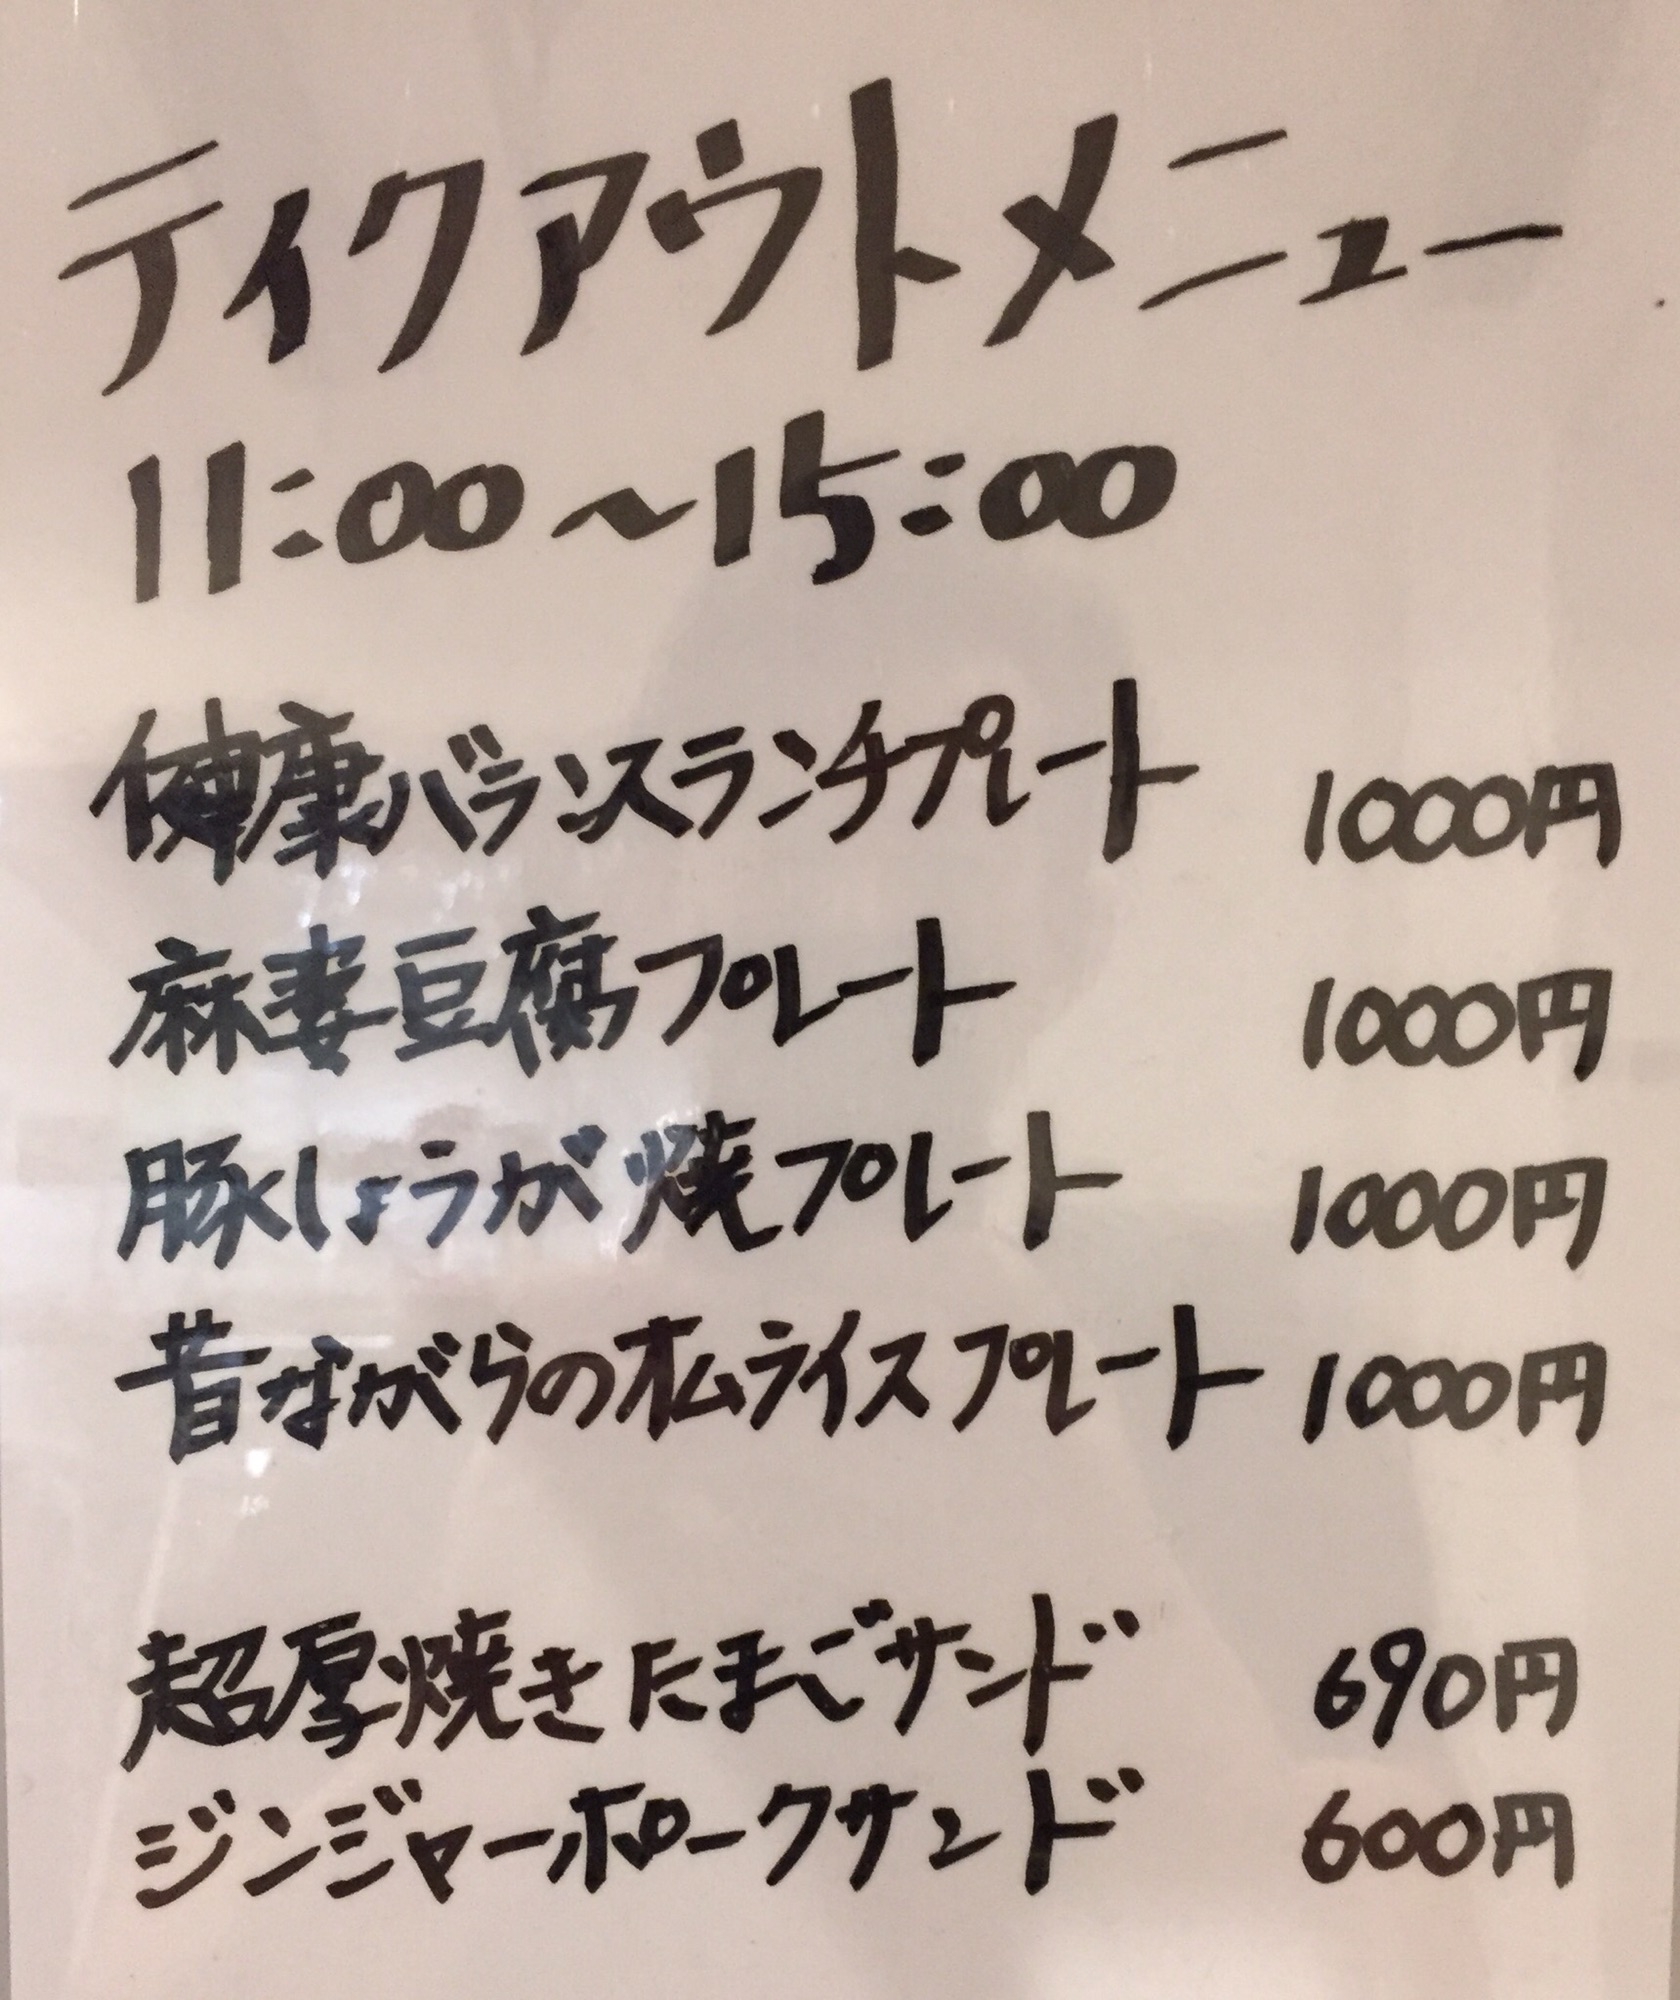 テイクアウトメニュー
11:00～15:00
健康バランスランチプレート 1000円
麻妻豆腐プレート 1000円
豚しょうが焼プレート 1000円
昔ながらのオムライスプレート 1000円
超厚焼きたまごサンド 690円
ジンジャーポークサンド 600円